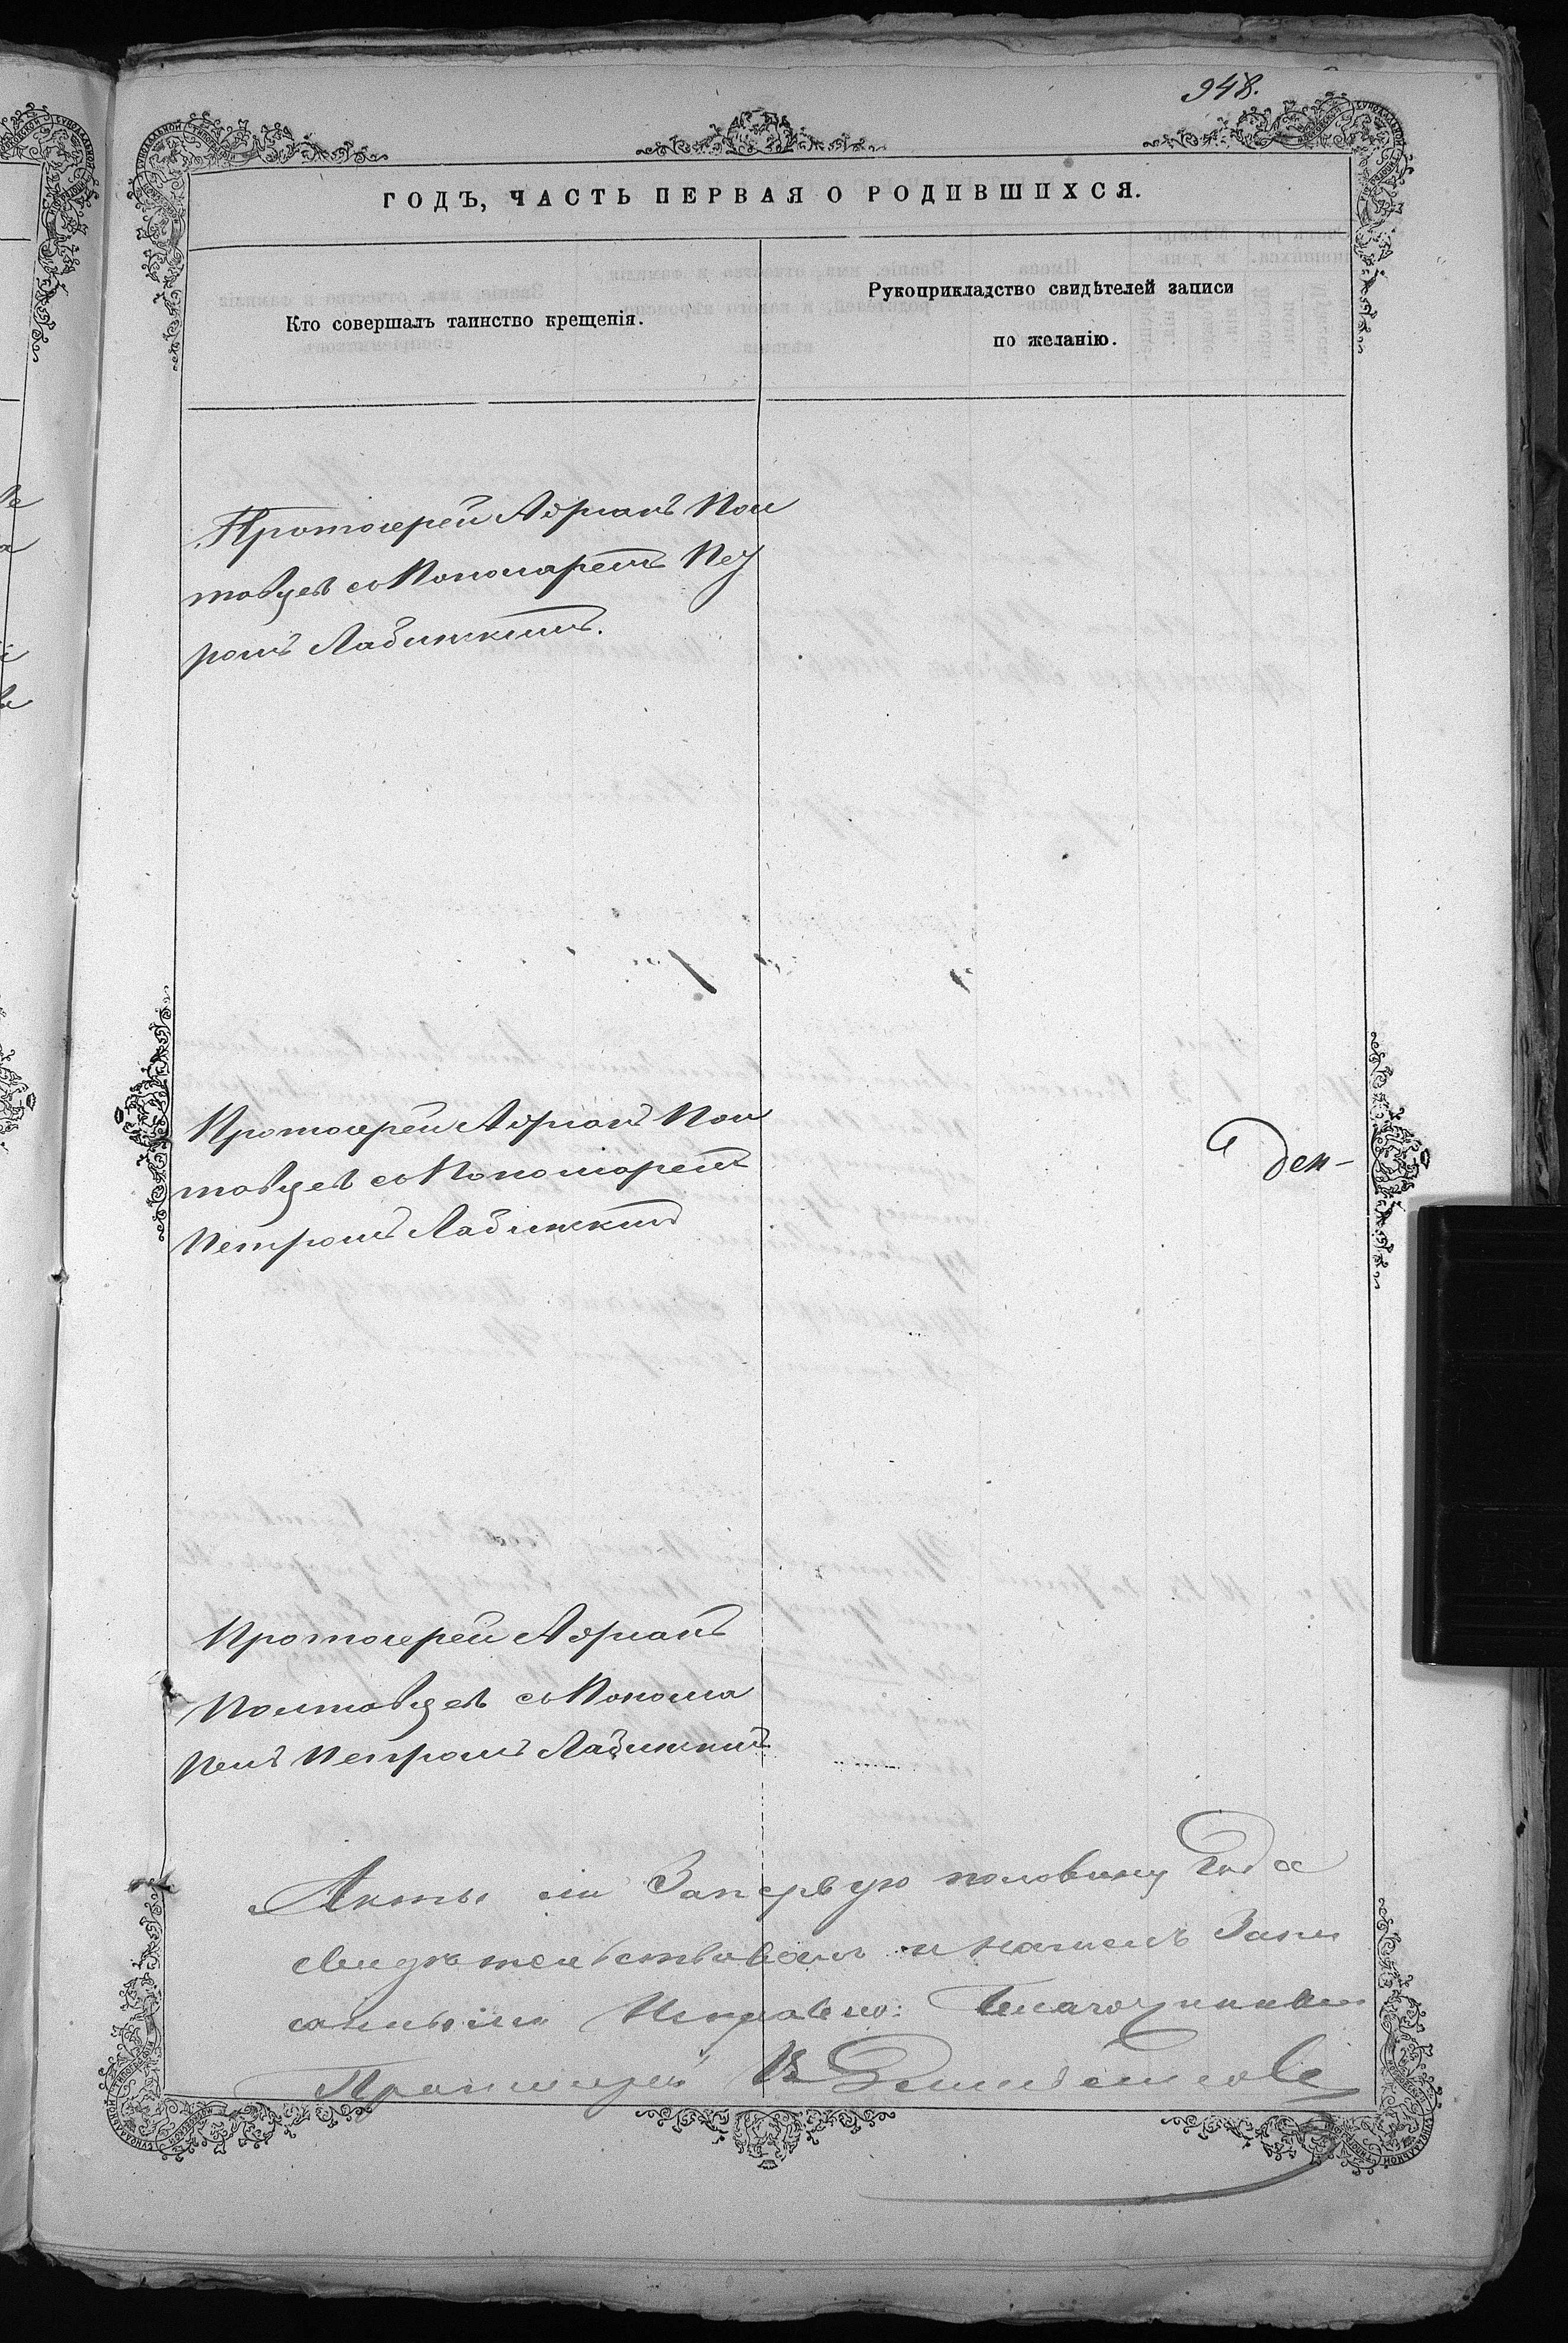 948.
ГОДЪ, ЧАСТЬ ПЕРВАЯ О РОДИВШИХСЯ.
Кто совершалъ таинство крещенія.
Рукоприкладство свидѣтелей записи
по желанію.
Протоіерей Адріанъ Пол
тавцев со Пономаремъ Пет
ромъ Лабинскимъ.
Протоіерей Адріанъ Пол
тавцев со Пономаремъ
Петромъ Лабинскимъ
ден-
Протоіерей Адріанъ
Полтавцев со Понома
ремъ Петромъ Лабинскимъ
Акты сіи За первую половину Года
свидѣтельствовалъ и нашелъ Запи
санными Исправно: Благочинный
Протоіерей В